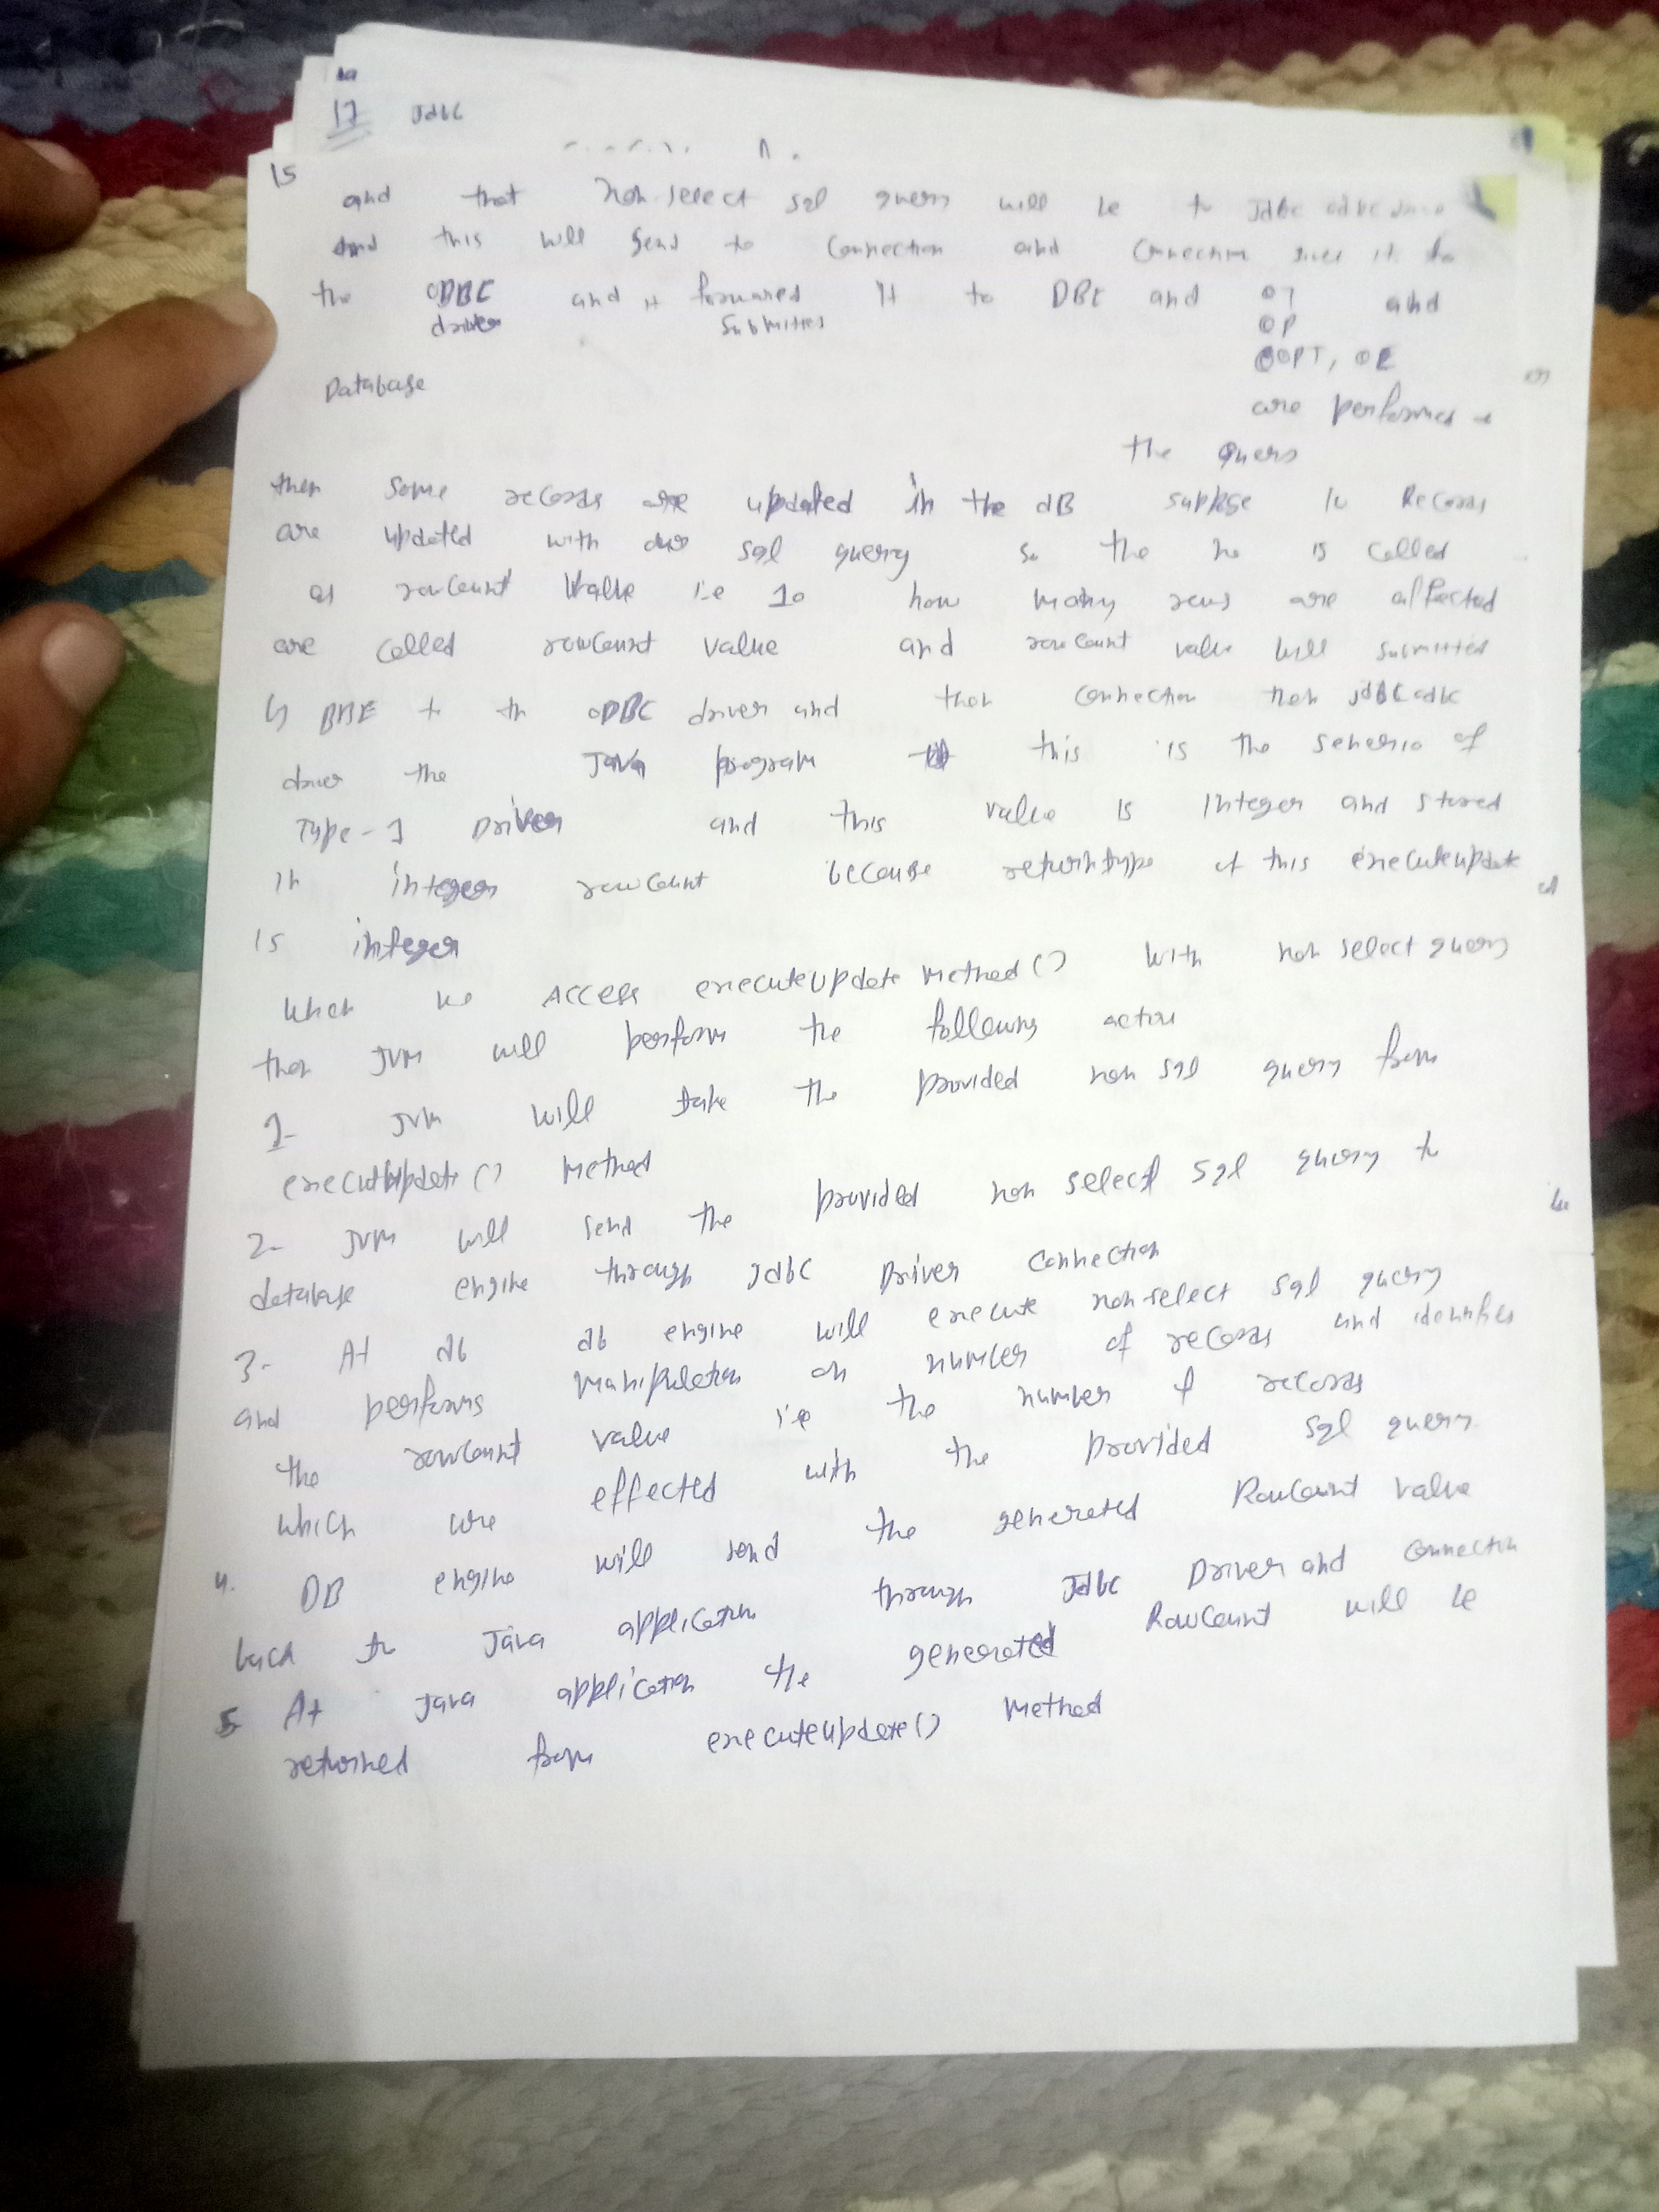 17 Jdbc
15
and that non-select sql query will be to Jdbc odbc
and this will send to Connection and Connection gives it to
the ODBC and it forwared it to DBE and OT and
driver submitted OP
OOPT, OE
Database
are performed
the query
then some records are updated in the dB suppose 10 Records
are updated with our sql query so the no is called
as rowcount Value i.e 10 how many rows are affected
are called rowcount value and rowcount value will submitted
by DBE to th ODBC driver and then Connection then jdbc odbc
driver the Java program this is the senerio of
Type-1 Driver and this value is Integer and stored
in integer rowcount because returntype of this executeupdate
is integer
when we Access executeUpdate Method() with non select query
then JVM will perform the following action
1- JVM will take the provided non sql query from
executeUpdate() Method
2- JVM will send the provided non select sql query to
database engine through Jdbc Driver Connection
3- At db db engine will execute non select sql query
and performs manipulation on number of records and identifies
the rowcount value i.e the number of records
which are effected with the provided sql query
4. DB engine will send the generated RowCount value
back to Java application through Jdbc Driver and Connection
5 At Java application the generated RowCount will be
returned from executeupdate() Method